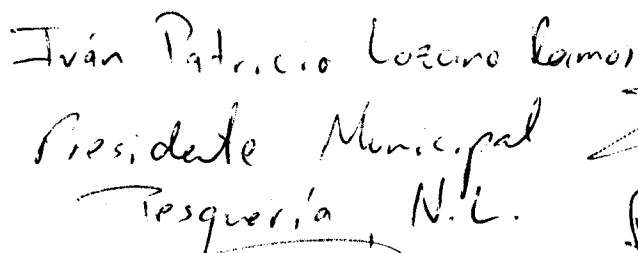 Iván Patricio Lozano Ramos
Presidente Municipal
Pesquería, N.L.